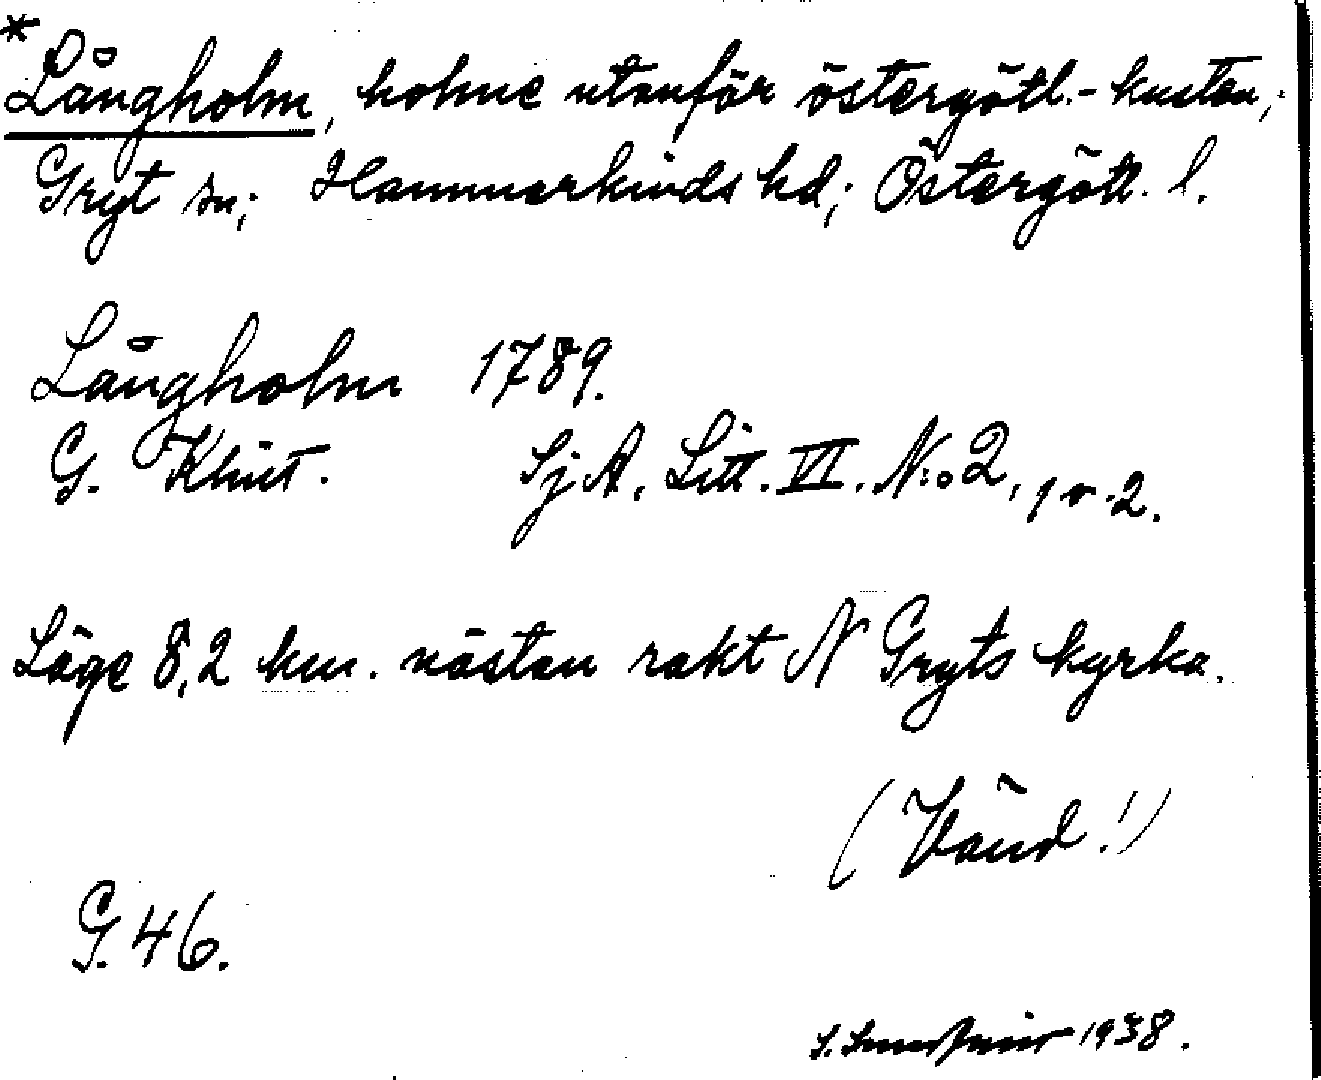 *Långholm, holme utanför östergötl.-kusten;
Gryt sn; Hammarkinds hd; Östergötl. l.
Långholm 1789.
G. Klint. SjA. Litt. VI. N:o 2, 1 o. 2.
Läge 8,2 km. nästan rakt N Gryts kyrka.
(Vänd!)
G. 46.
S. 1938.